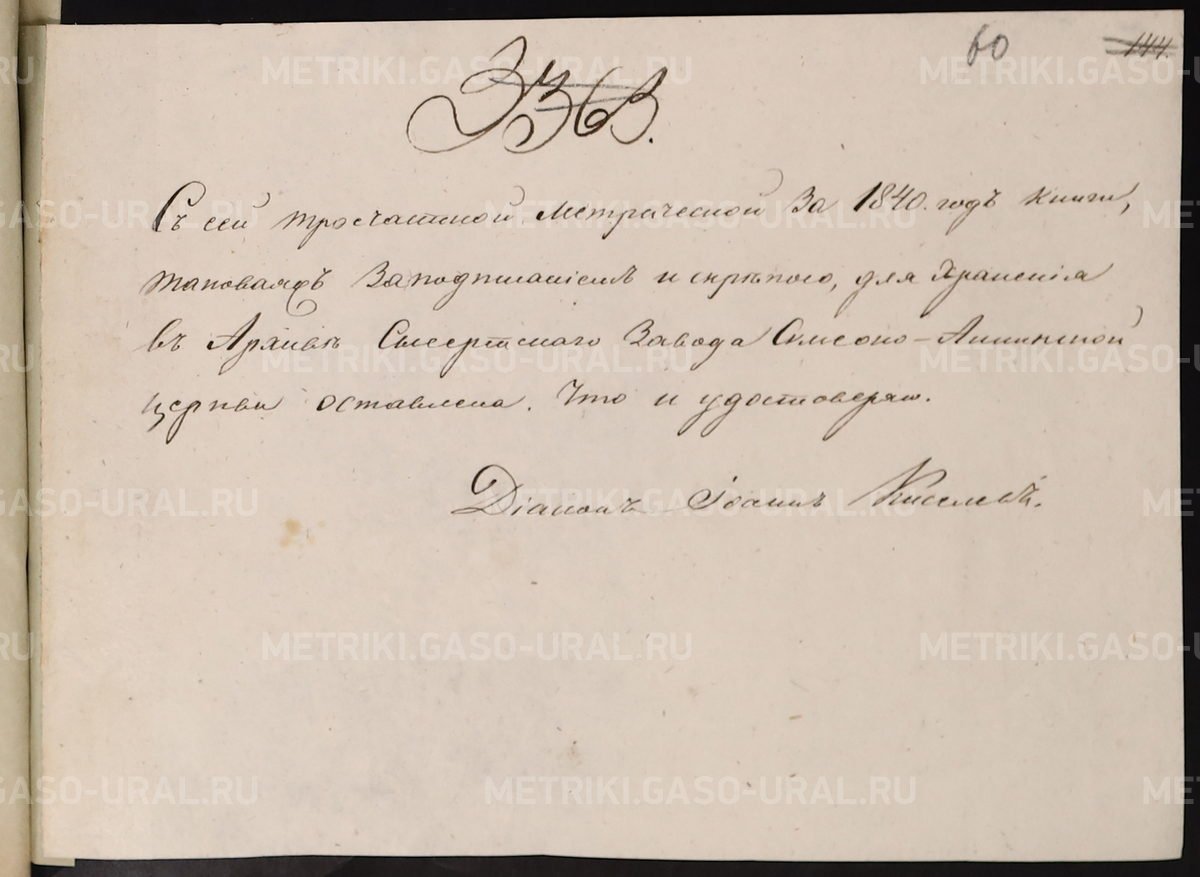 60 144.
336 в.
Съ сей троечастной Метрической За 1840. годъ книги,
таковаяжъ За подписаніемъ и скрѣпою, для Храненія
въ Архивѣ Сысертскаго Завода Симеоно-Аннинской
церкви оставлена. Что и удостоверяю.
Діаконъ Іоаннъ Киселевъ.
METRIKI.GASO-URAL.RU